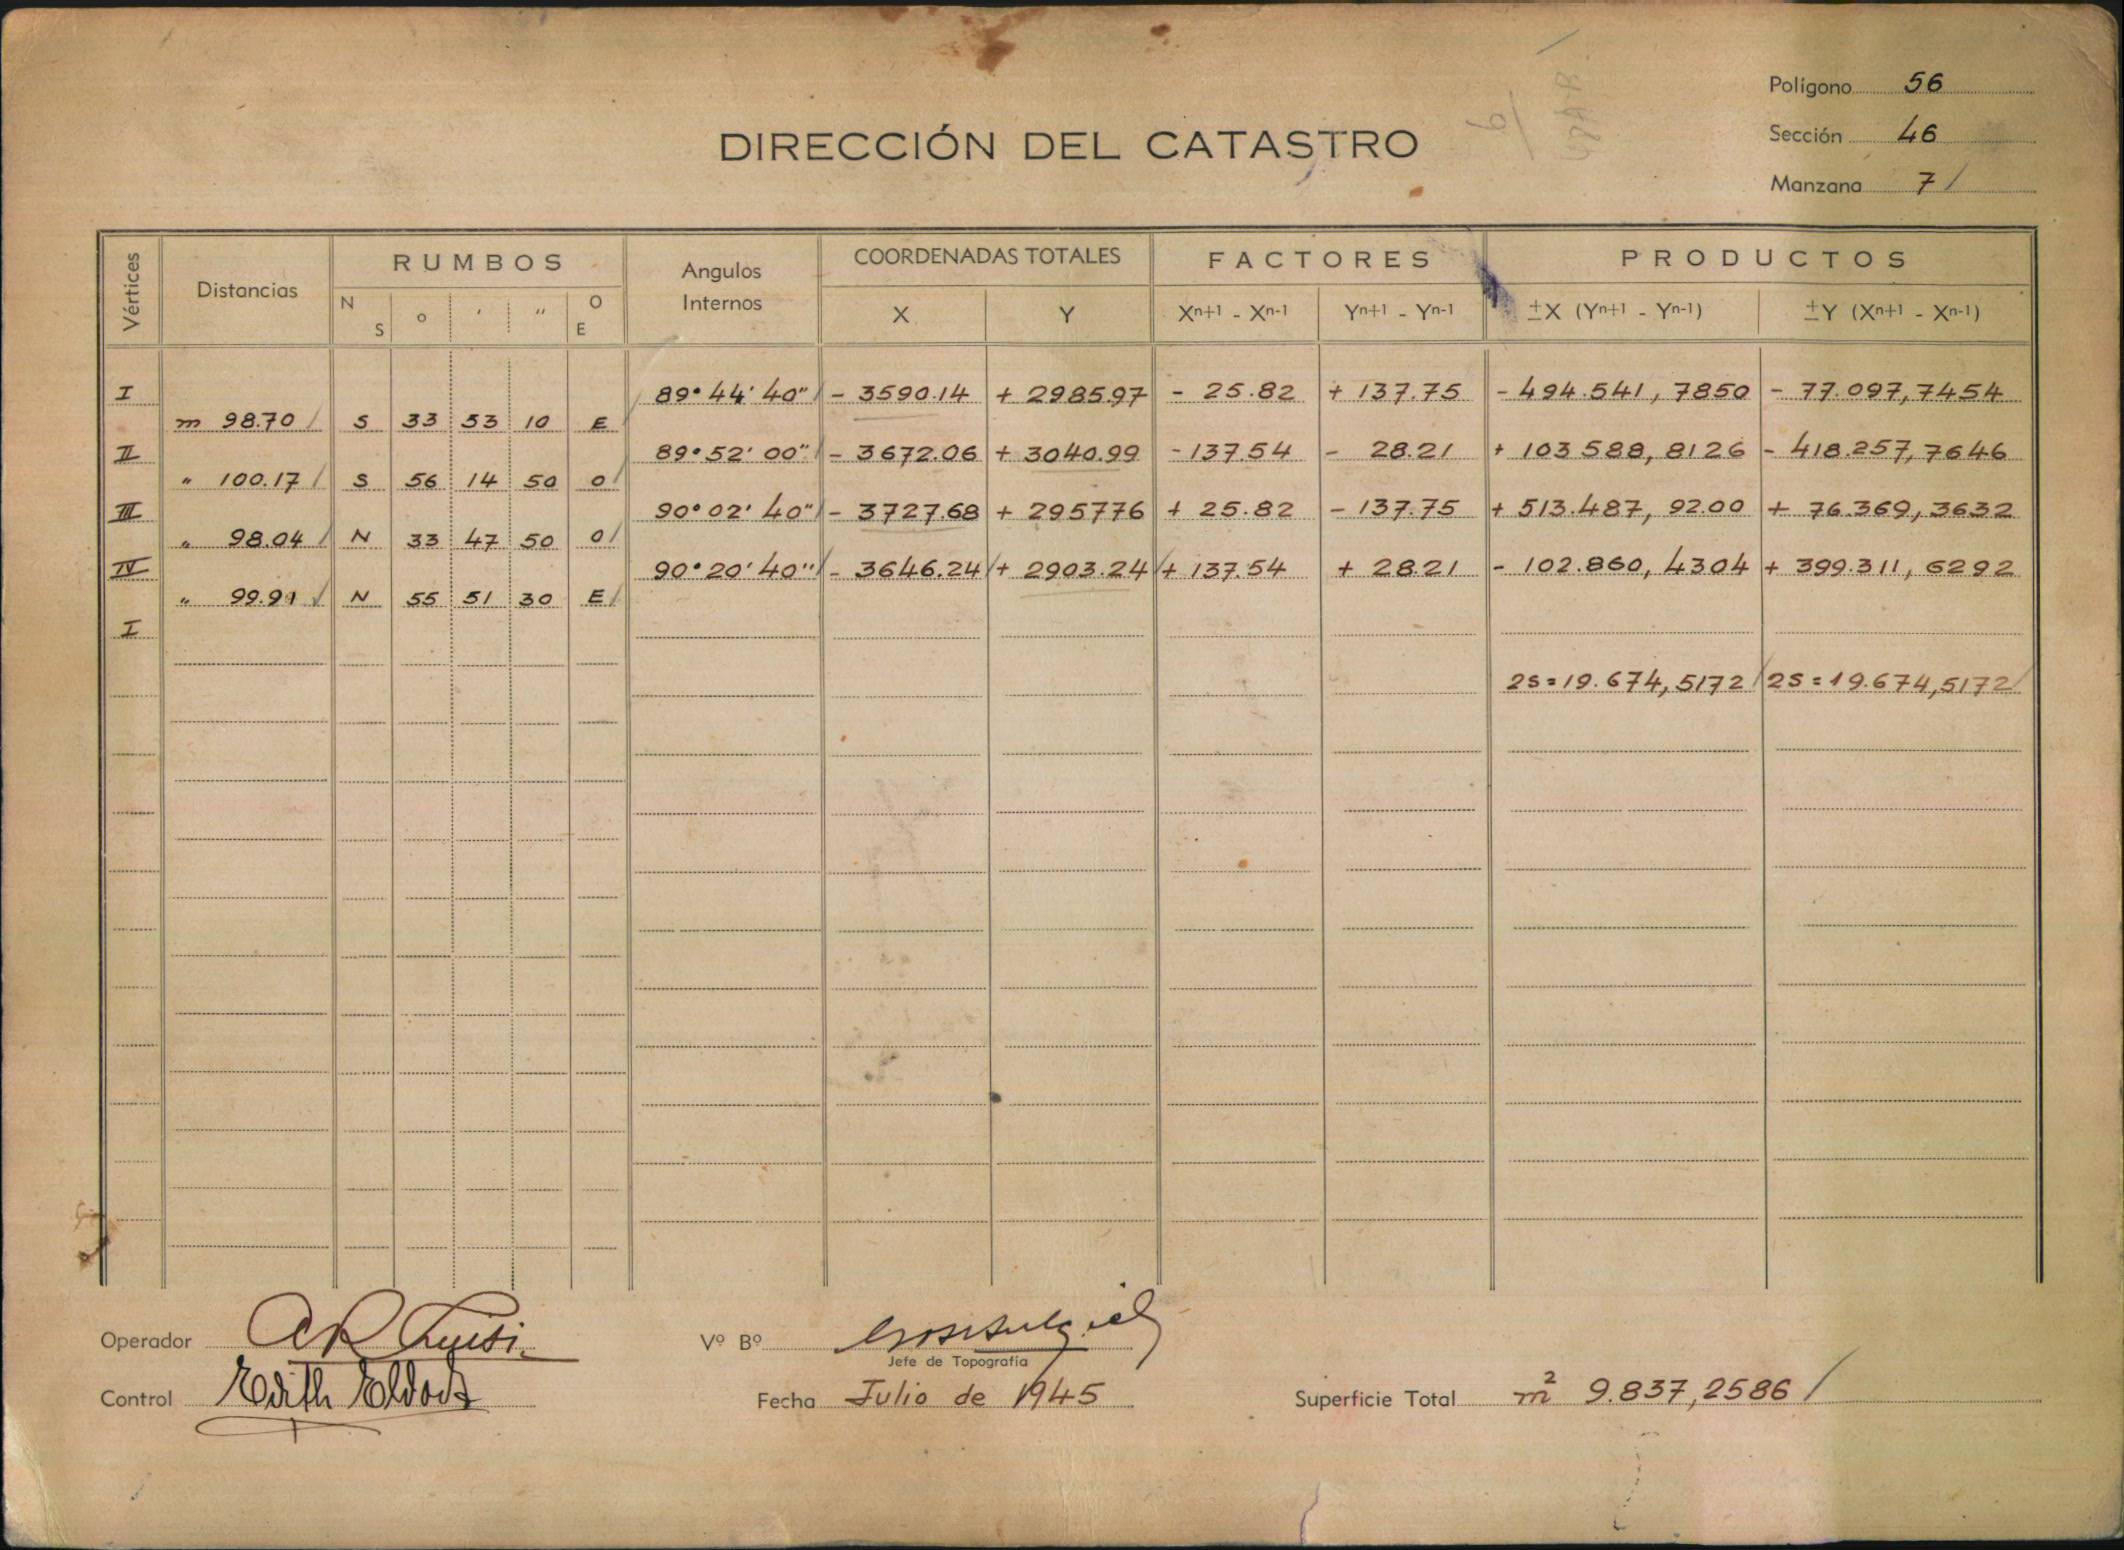 Polígono 56
DIRECCIÓN DEL CATASTRO
Sección 46
Manzana 7/
Vértices Distancias RUMBOS Angulos Internos COORDENADAS TOTALES FACTORES PRODUCTOS
N S o ' " O E X Y Xn+1 - Xn-1 Yn+1 - Yn-1 ±X (Yn+1 - Yn-1) ±Y (Xn+1 - Xn-1)
I 89° 44' 40" / - 3590.14 + 2985.97 - 25.82 + 137.75 - 494.541, 7850 - 77.097,7454
m 98.70 / S 33 53 10 E /
II 89° 52' 00" / - 3672.06 + 3040.99 - 137.54 - 28.21 + 103 588, 8126 - 418.257,7646
" 100.17 / S 56 14 50 O /
III 90° 02' 40" / - 3727.68 + 295776 + 25.82 - 137.75 + 513.487, 92.00 + 76.369, 3632
" 98.04 / N 33 47 50 O /
IV 90° 20' 40" / - 3646.24 / + 2903.24 / + 137.54 + 28.21 - 102.860, 4304 + 399.311, 6292
" 99.91 / N 55 51 30 E /
I
2S = 19.674, 5172 / 2S = 19.674,5172 /
Operador
Vº Bº
Jefe de Topografía
Control Edith
Fecha Julio de 1945
Superficie Total m² 9.837,2586 /